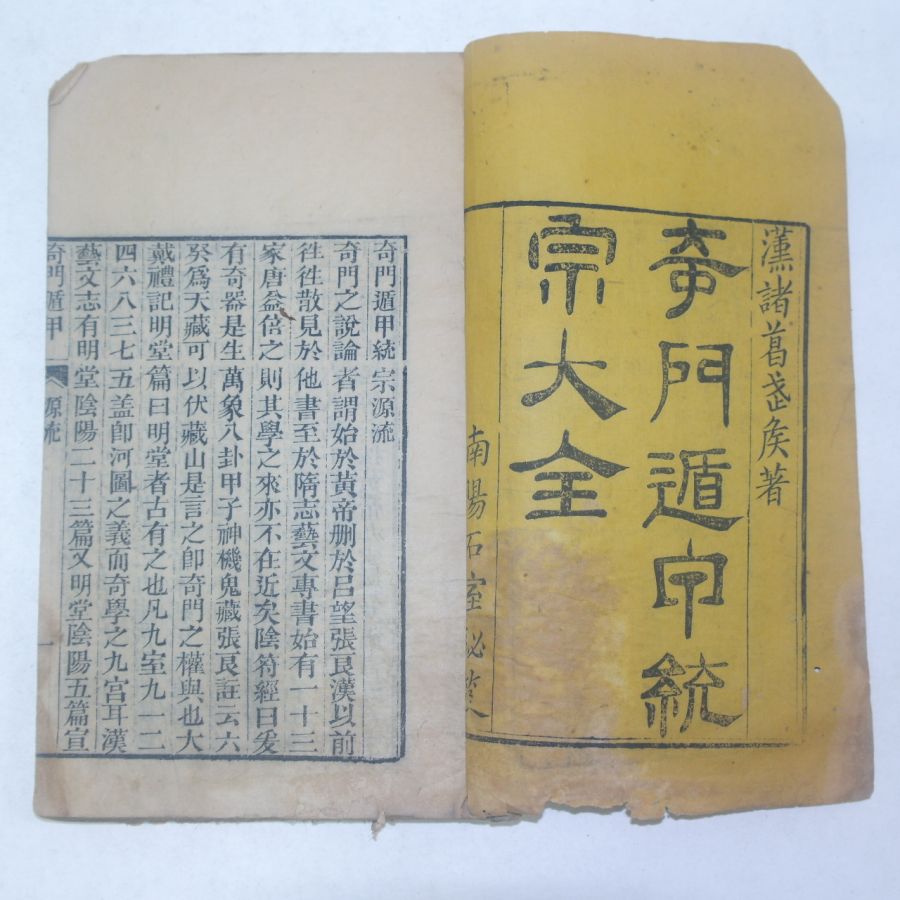 漢諸葛武矦著
奇門遁甲統
宗大全
南陽石室秘笈
奇門遁甲統宗源流
奇門之說論者謂始於黃帝刪於呂望張良漢以前
徃徃散見於他書至於隋志藝文專書始有一十三
家唐益倍之則其學之來亦不在近矣陰符經曰爰
有奇器是生萬象八卦甲子神機鬼藏張良註云六
癸爲天藏可以伏藏山是言之卽奇門之權輿也大
戴禮記明堂篇曰明堂者古有之也凡九室九一二
四六八三七五盖卽河圖之義而奇學之九宫耳漢
藝文志有明堂陰陽二十三篇又明堂陰陽五篇宣
奇門遁甲 源流 一